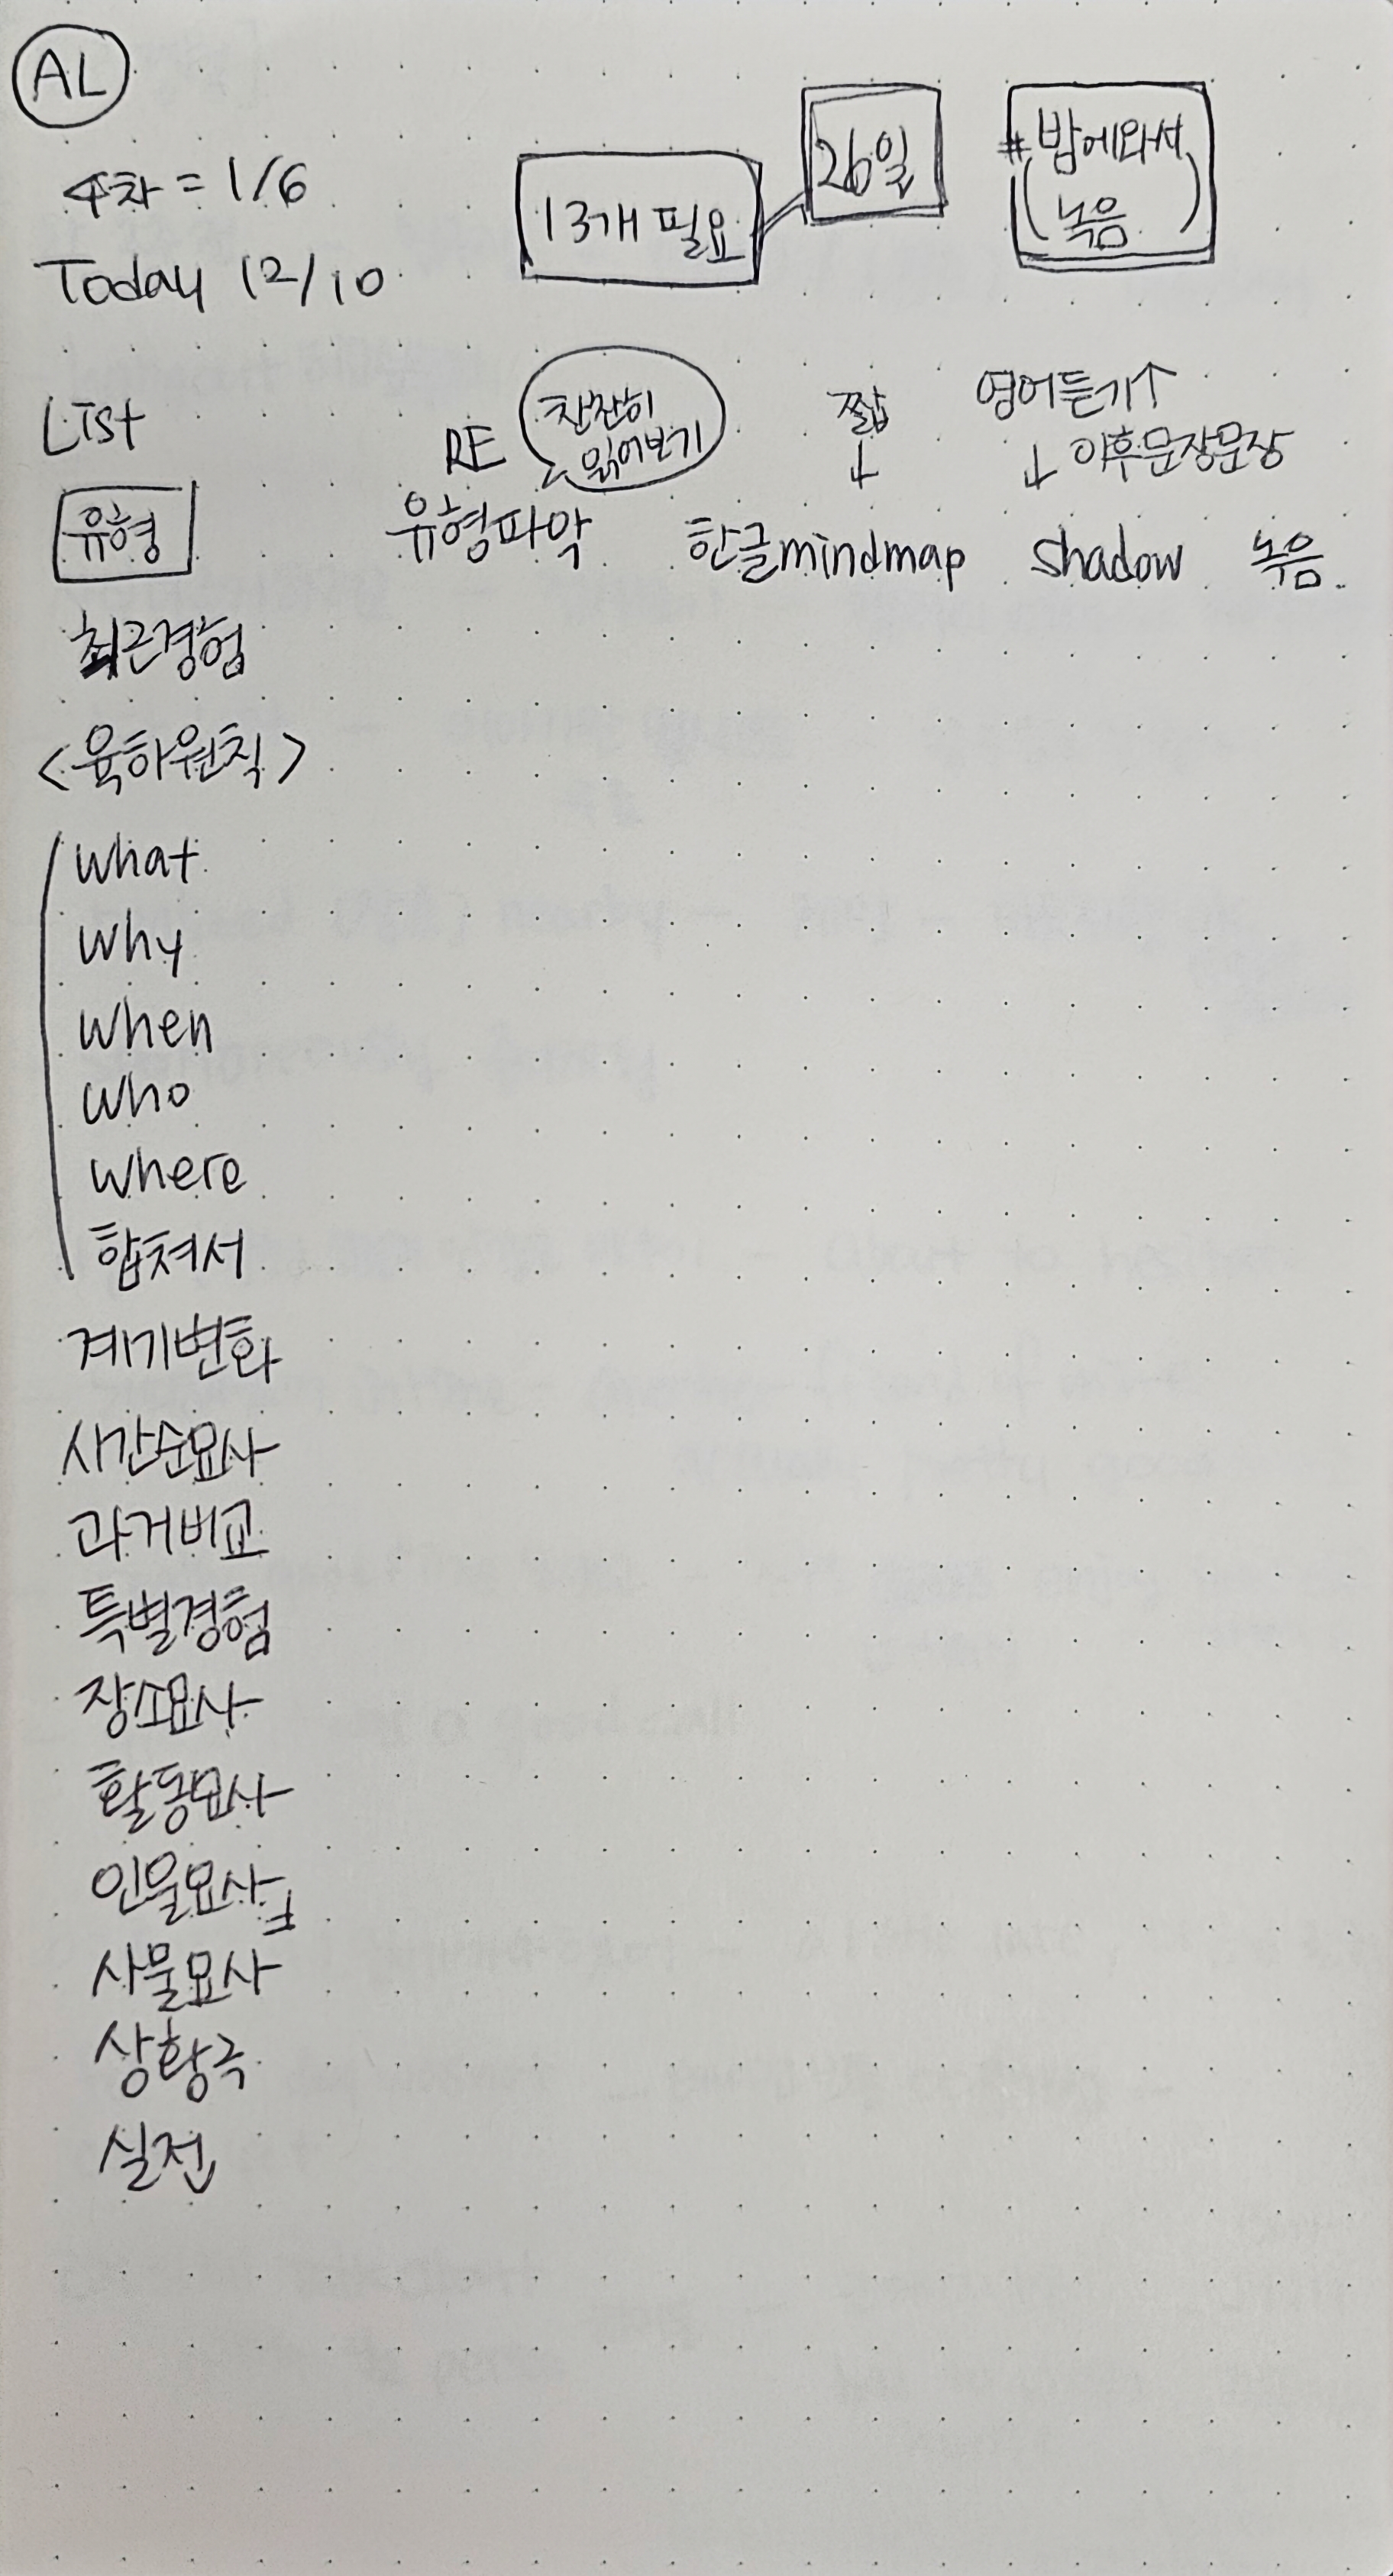 AL
4차 = 1/6
Today 12/10
13개 필요
26일
# 밤에와서
(녹음)
List
RE
찬찬히
읽어보기
짧
↓
영어듣기↑
↓ 이후문장문장
유형
유형파악
한글mindmap
shadow
녹음
최근경험
<육하원칙>
what
why
when
who
where
합쳐서
계기변화
시간순묘사
과거비교
특별경험
장소묘사
활동묘사
인물묘사
사물묘사
상황극
실전